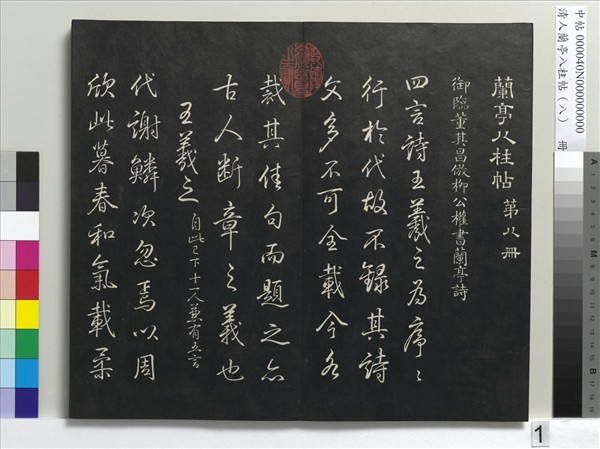 蘭亭八柱帖 第八冊
御臨董其昌倣柳公權書蘭亭詩
四言詩王羲之為序〻
行於代故不錄其詩
文多不可全載今各
裁其佳句而題之亦
古人斷章之義也
王羲之 自此已下十一人並有五言
代謝鱗次忽焉以周
欣此暮春和氣載柔
中帖 000040N000000000 冊
清人蘭亭八柱帖(八)
1
A 1 2 3 4 5 6 7 8 9 10 11 12 13 14 15 B 17 18 19